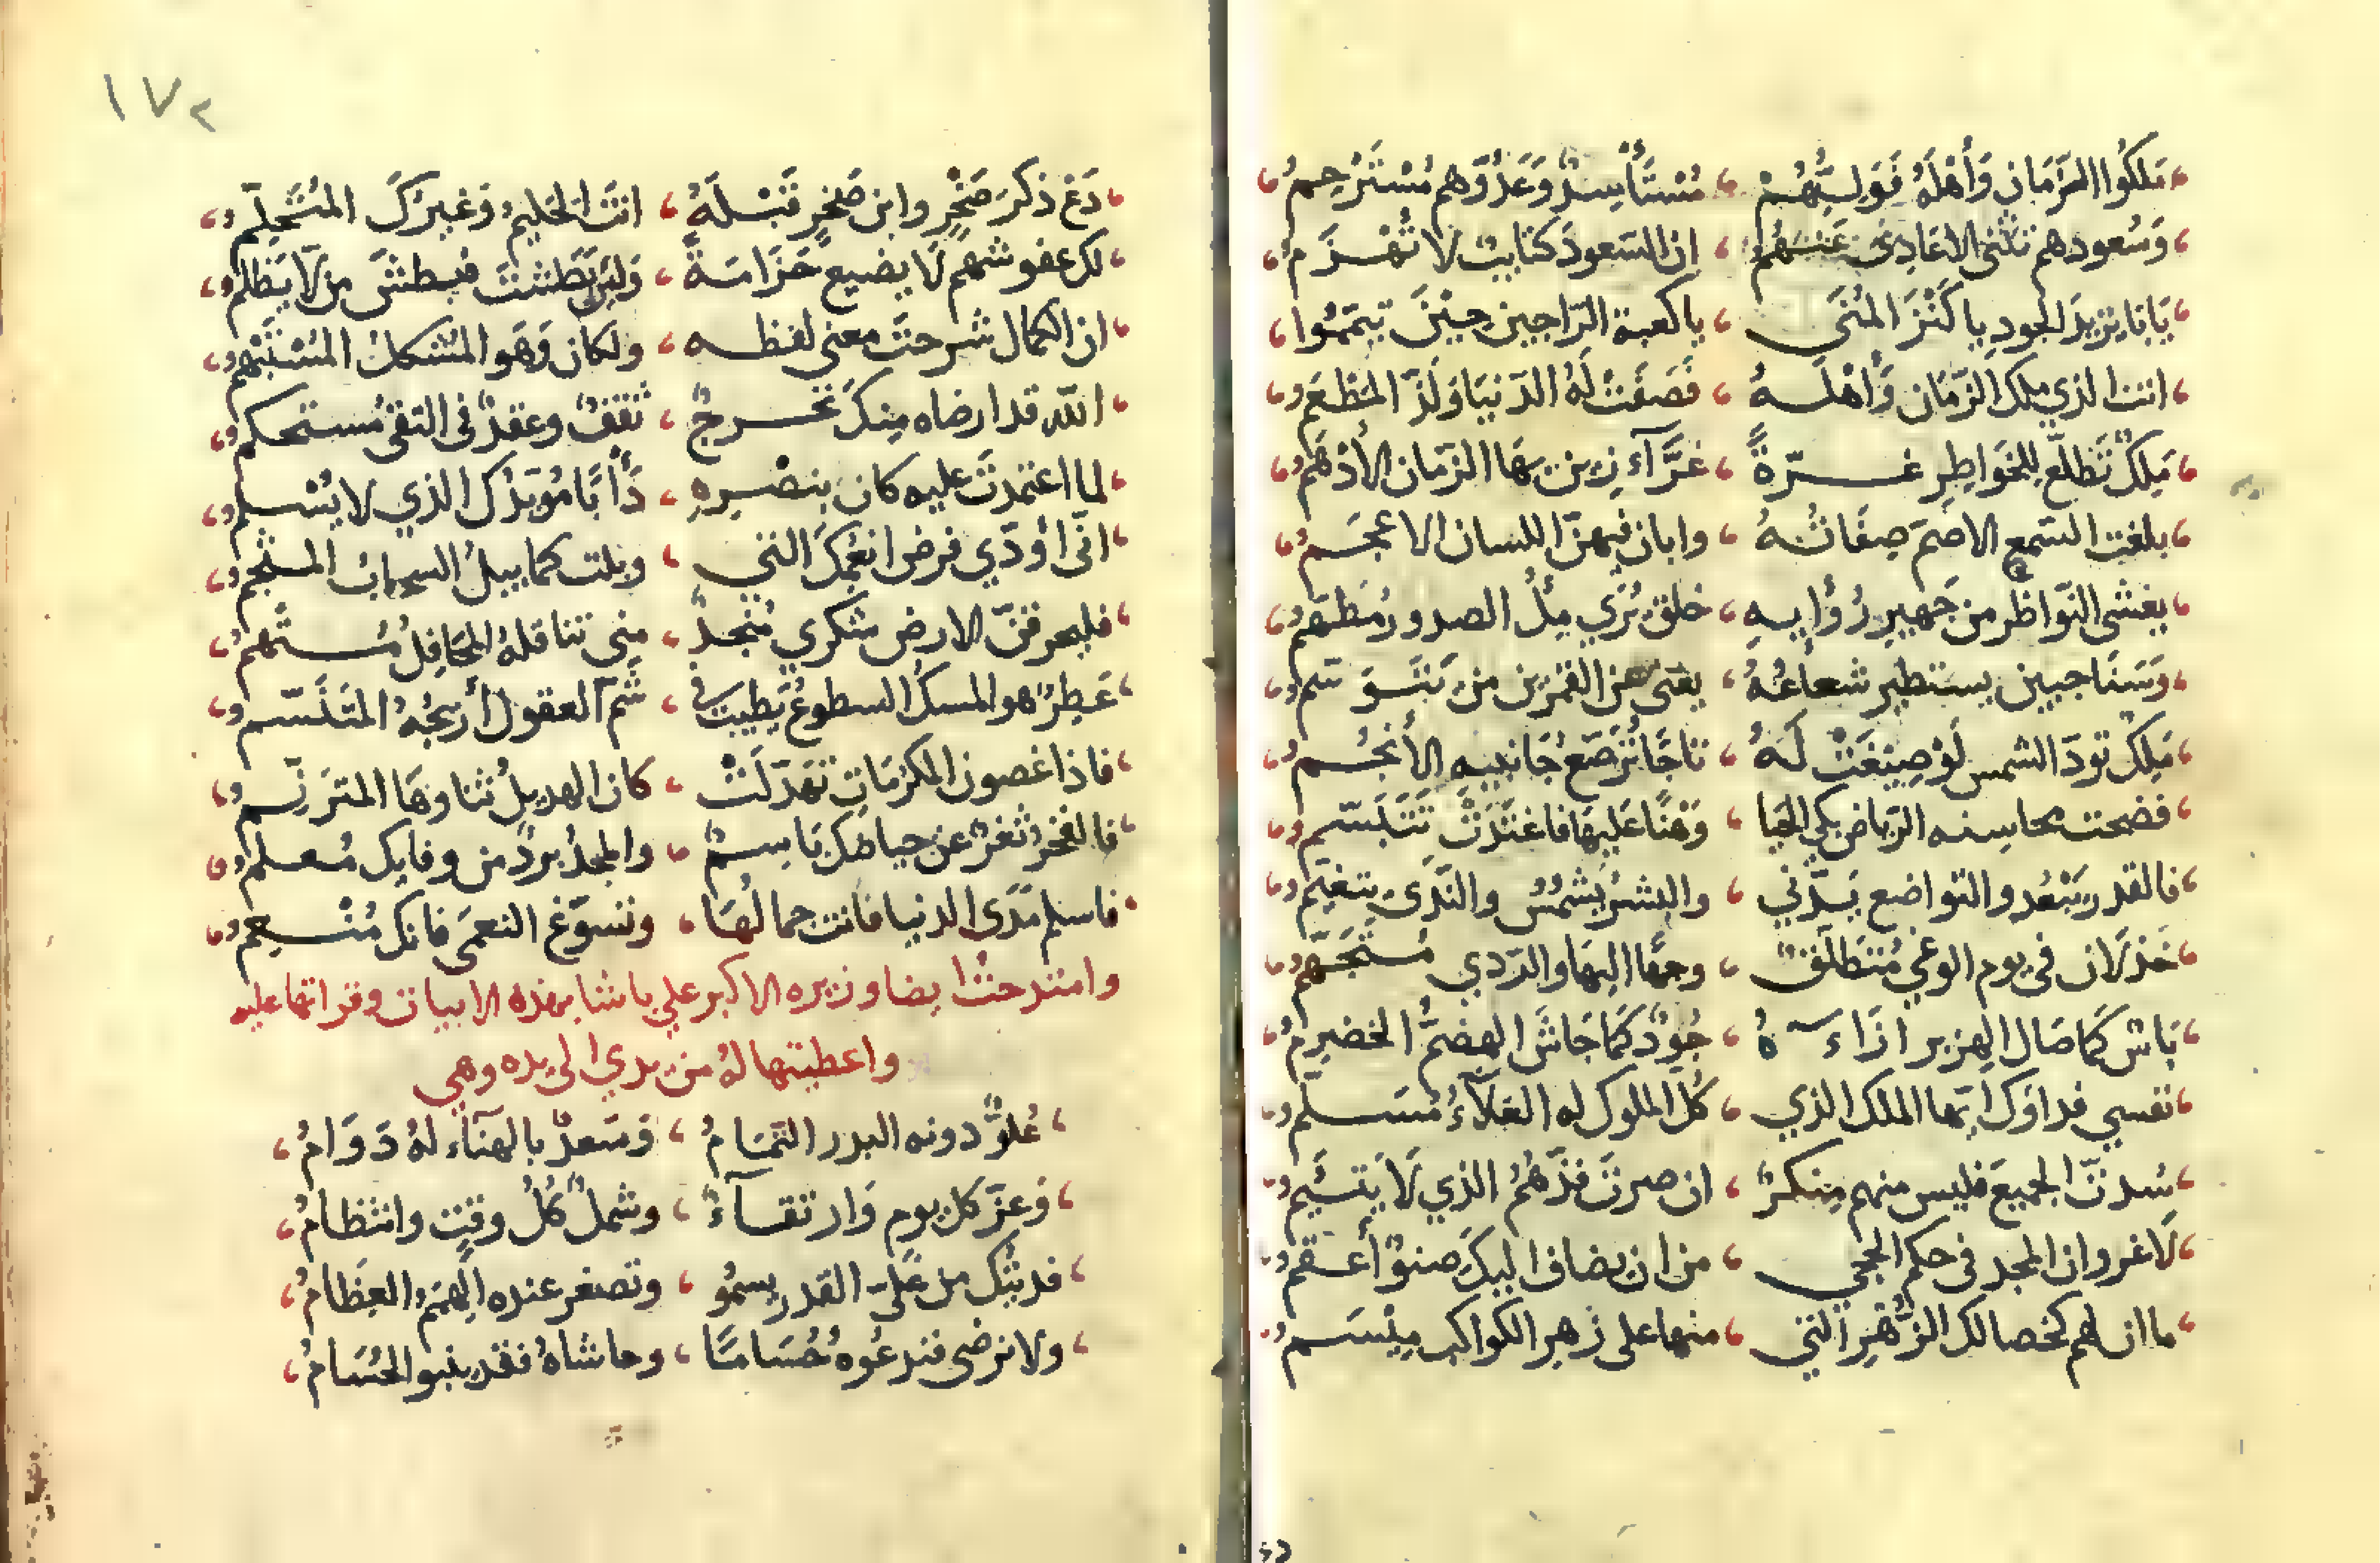 مَلكُوا الزَّمَان وَأَهْلَهُ فَوَليُّهُمْ ، مُسْتَأسِدٌ وَعَدُوّهم مُسْتَرْحِمُ ،
وَسُعودهم تثنى الاعَادِىَ عَنهُمُ ، ان السّعودَ كتايبٌ لا تُهْزَمُ ،
يَا بايزيدَ الجودِ يا كَنْزَ المُنَى ، يا كعبة الرّاجين حِيْنَ تيَمّمُوا ،
انت الذي ملك الزّمَان وَأهْلَهُ ، فَصَفَتْ لَهُ الدّنيَا وَلَذّ المَطْعَمُ ،
مَلِكٌ تَطَلّع للخَوَاطِرِ غرّةً ، غَرَّآء زينَ بهَا الزّمَان الأدْهَمُ ،
بلغت السّمع الاصَمّ صِفَاتُهُ ، وابان فيهنّ اللسان الاعجَمُ ،
يغشى النّواظر من جَهيرِ رُؤايهِ ، خلقٌ يُرَي مِلْأ الصدور مُطَهّمُ ،
وَسَنَا جبين يستطير شعاعُهُ ، يغنى عن القمرين من يَتَوَسّمُ ،
مَلِكٌ تودّ الشمس لَوْ صِيْغَتْ لَهُ ، تاجًا تُرَصّع جَانبيه الأنجُمُ ،
فضحت محاسنه الرّياض بكى الحَيا ، وَهْنًا عَليهَا فاغتَدَتْ تَتَبَسّمُ ،
فالقدر يَبْعُد والتّواضع يَدّني ، والبشرُ يُشمِسُ والنّدَى يتغيّم ،
خَذلان في يوم الوغي مُتَطَلّقٌ ، وجهًا اليها والرّدي متَجَهّم ،
بَاسٌ كَمَا صَال الهزبر ازَاءَهُ ، جُوْدٌ كَمَا جَاشَ الهِضَمُّ الخضرمُ ،
نفسي فداوك ايّها الملك الذي ، كُل الملوك له العَلآءُ مُسَلّمُ ،
سُدتَ الجميعَ فليس منهم منكرٌ ، ان صرتَ فذّهُمُ الذي لَا يَتئِمُ ،
لَا غرو ان المجد في حكم الحجي ، من ان يضاف اليكَ صنوٌ أعقمُ ،
ما ان لهم كخصالك الزُّهْرِ التي ، منها على زهر الكواكب مِيْسَمُ ،
١٧٢
دَعْ ذكرَ صَخْرٍ وابن صَخرٍ قَبْلَهُ ، انتَ الحَليمُ وَغيرُكَ المُتَحلّمُ ،
لك عفو شهم لَا يضيع حَزَامَةً ، وَلئن بَطَشتَ فبطشَ من لَا يَظلمُ ،
ان الكمال شرحتَ معنى لفظه ، ولكان وَهو المُشكلُ المُسْتَبْهِمُ ،
الله قد ارضاه مِنكَ تحرجٌ ، ثقفٌ وعقدٌ في التقى مُستحكمُ ،
لما اعتمدتَ عليه كان بنصْرِهِ ، دَأبًا مُوَيدُك الذي لا يُسْلمُ ،
انّى أؤدّي فرض انعُمِكَ التي ، وبلت كما يبلُ السحابُ المسْجمُ ،
فليعرقنّ الارض شكري مُنْجِدٌ ، مني تناقلهُ المَحَافِلُ مُتْهمُ ،
عَطِرٌ هو المسك السطوعُ يَطيبُ في ، شَمّ العقول أريجُهُ المتَنَسّمُ ،
فاذا غصون المكرُمَاتِ تهَدّلَتْ ، كان الهديلُ ثناوهَا المترَنّمُ ،
فالفخرُ ثغرٌ عن حياتك بَاسمٌ ، والمجدُ بردٌ من وفايك مُعلمُ ،
فاسلم مَدَى الدنيا فانت جمالهَا ، وتسوّغ النعمَى فانك مُنْعِمُ ،
وامتدحتُ ايضا وزيره الاكبر علي باشا بهذه الابيات وقراتها عليه
واعطيتها لهُ من يدي الى يده وهي
عُلوٌّ دونه البدر التّمَامُ ، وَسَعدٌ بالهنآء لهُ دَوَامُ ،
وَعزّ كل يوم وَارتقآءٌ ، وشملٌ كُلُ وقتٍ وانتظامُ ،
فديتُك من عَليّ القدر يسمُو ، وتصغر عنده الهِمَمُ العِظَامُ ،
ولا نرضى فندعُوه حُسَامًا ، وحاشاهُ فقد ينبو الحُسَامُ ،